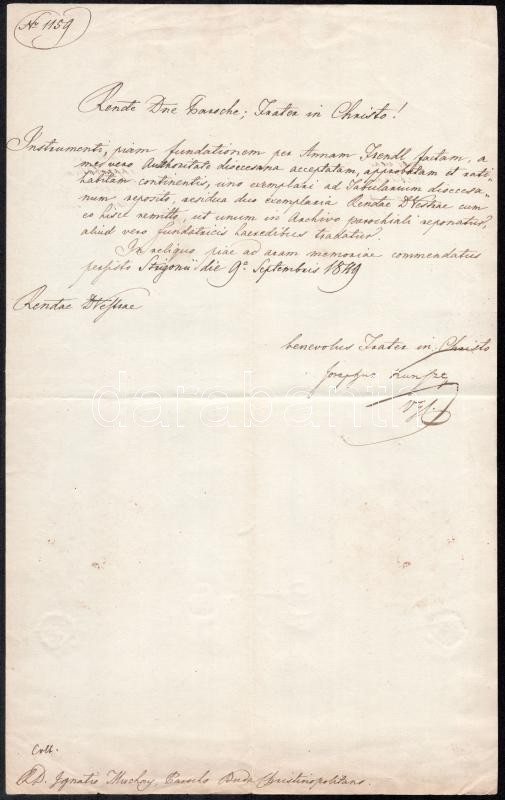 Nr 1159
Rende Dne Paroche; Frater in Christo!
Instrumenti, piam fundationem per Annam Trendl factam, a
me vero Authoritate dioecesana acceptatam, approbatam et rati-
habitam continentis, uno exemplari ad Tabularium dioecesa-
num reposito, residua duo exemplaria Rendae DVestrae cum
eo hisce remitto, ut unum in Archivo parochiali reponatur,
aliud vero fundatricis haeredibus tradatur.
In reliquo piae ad aram memoriae commendatus
persisto Strigonii die 9a Septembris 1849
Rendae DVestrae
benevolus Frater in Christo
Josephus Kunszt
darabanth
Colt.
R.D. Ignatio Muchay, Parocho Buda Christinopolitano.